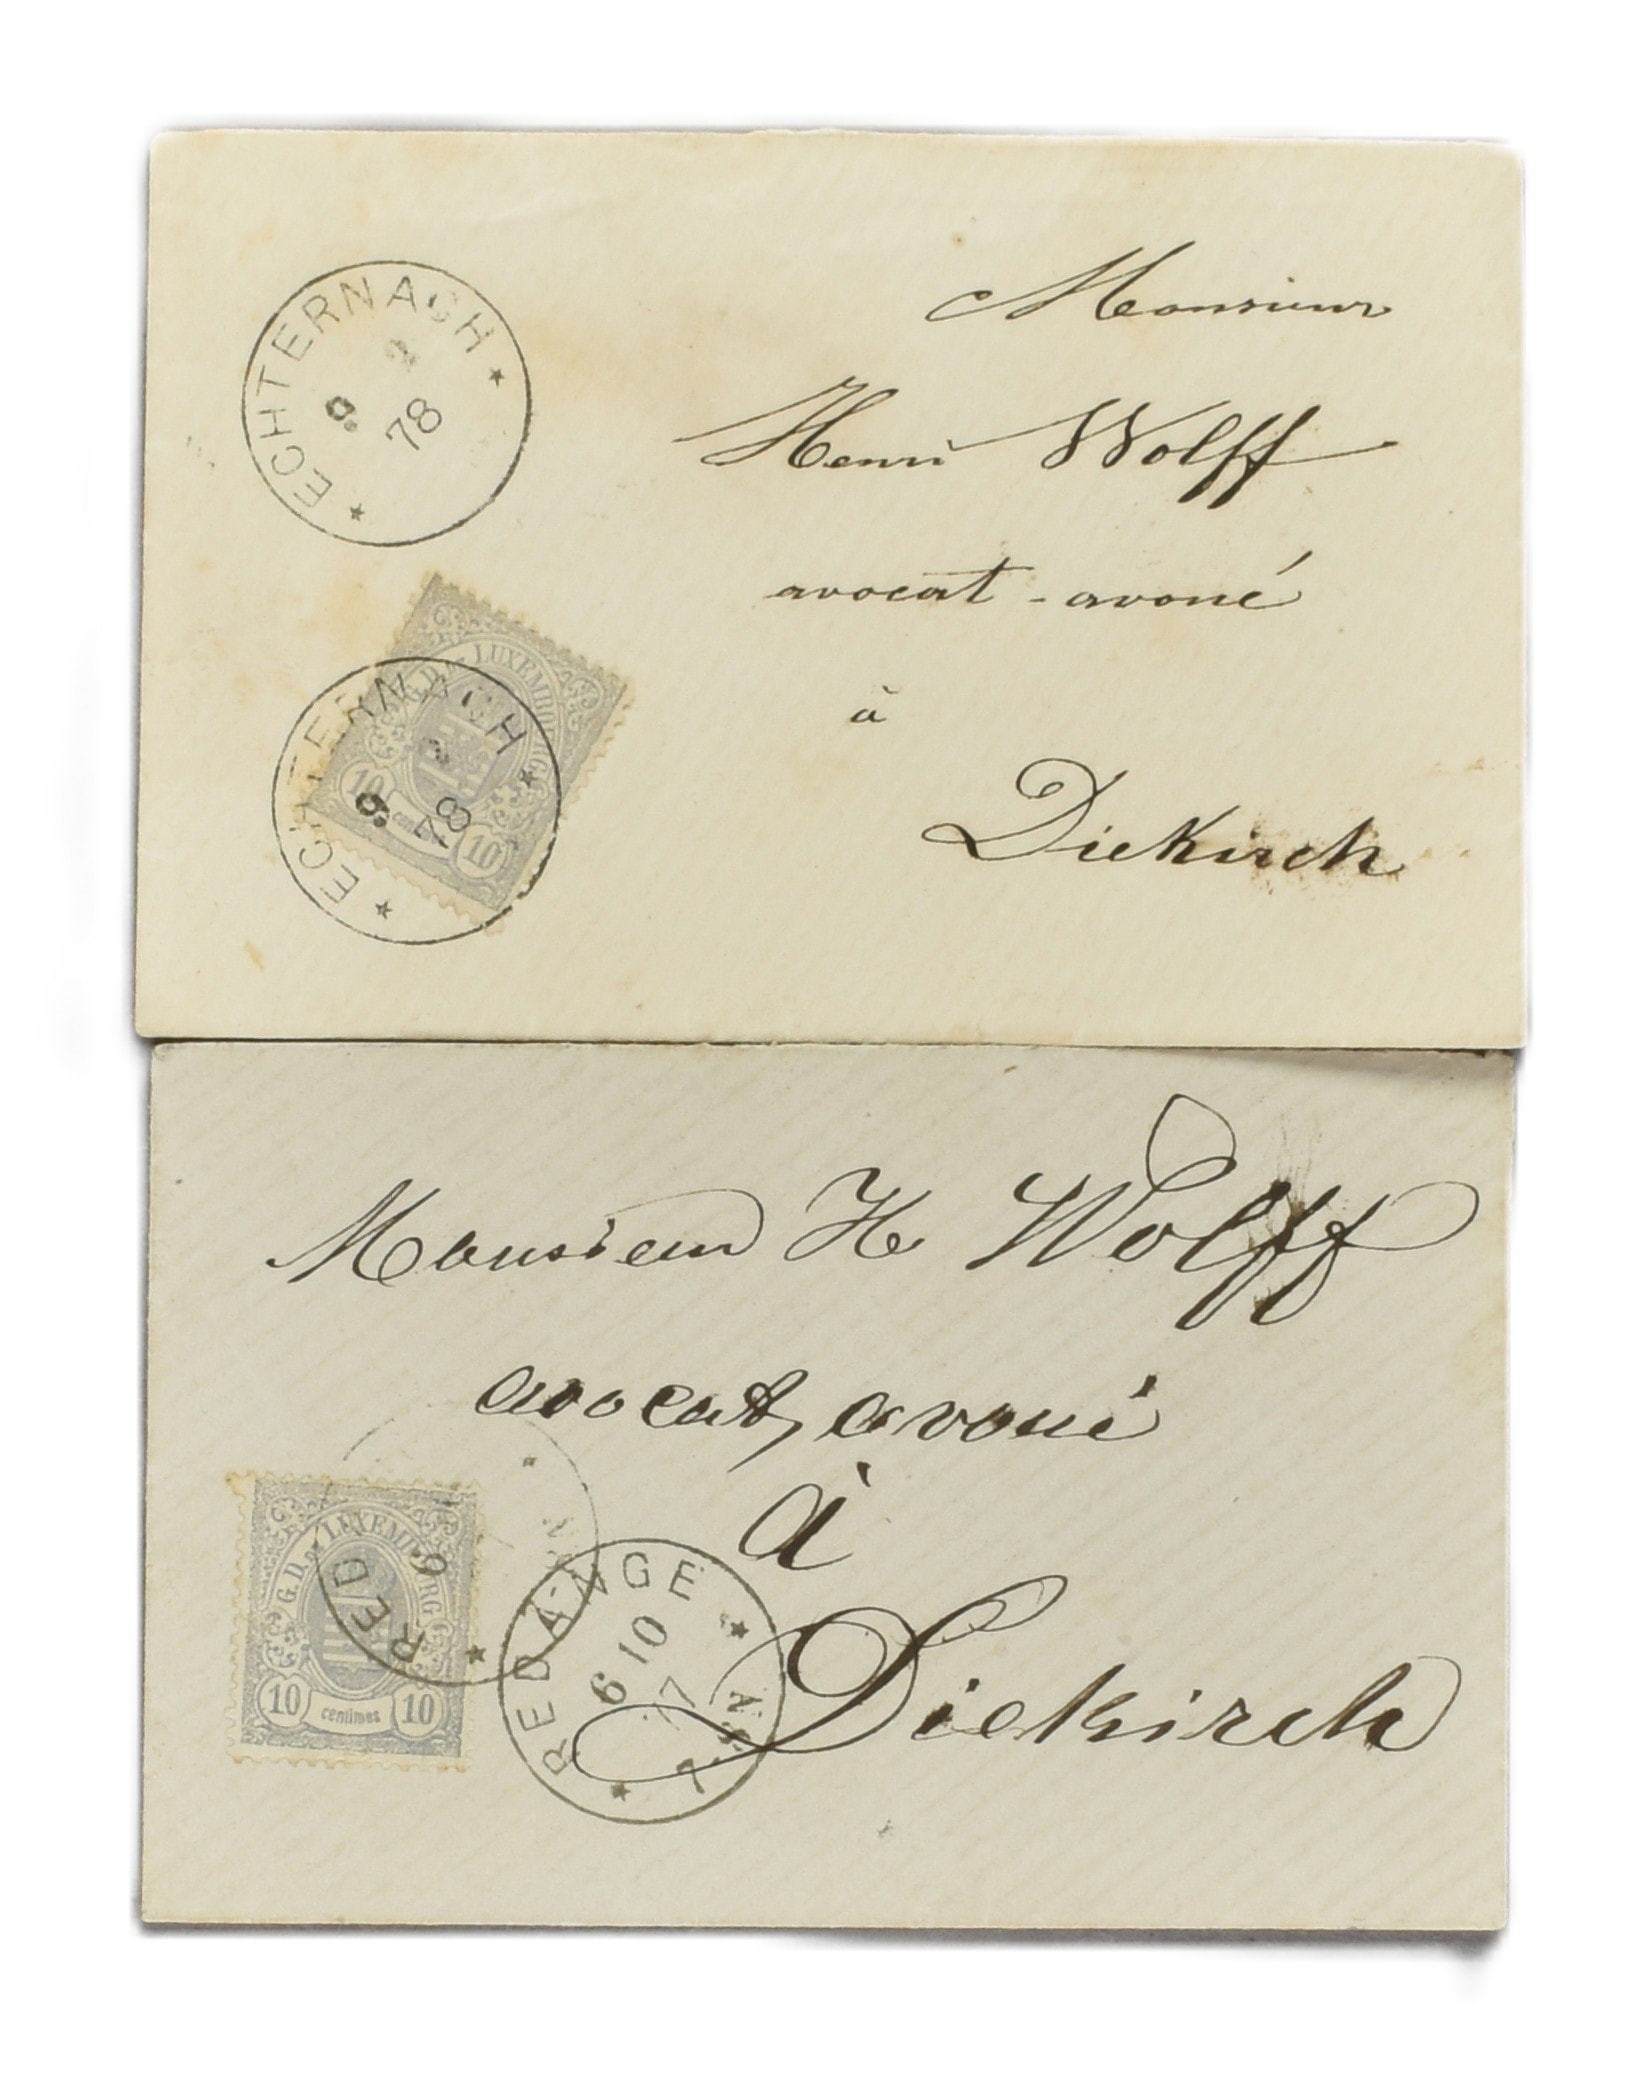 ECHTERNACH
9.
78
Monsieur
Henri Wolff
avocat - avoué
à
Diekirch
G.D. DE LUXEMBOURG
10 centimes 10
ECHTERNACH
9.
78
Monsieur H Wolff
avocat, avoué
à
Diekirch
G.D. DE LUXEMBOURG
10 centimes 10
RED
REDANGE
6 10
7